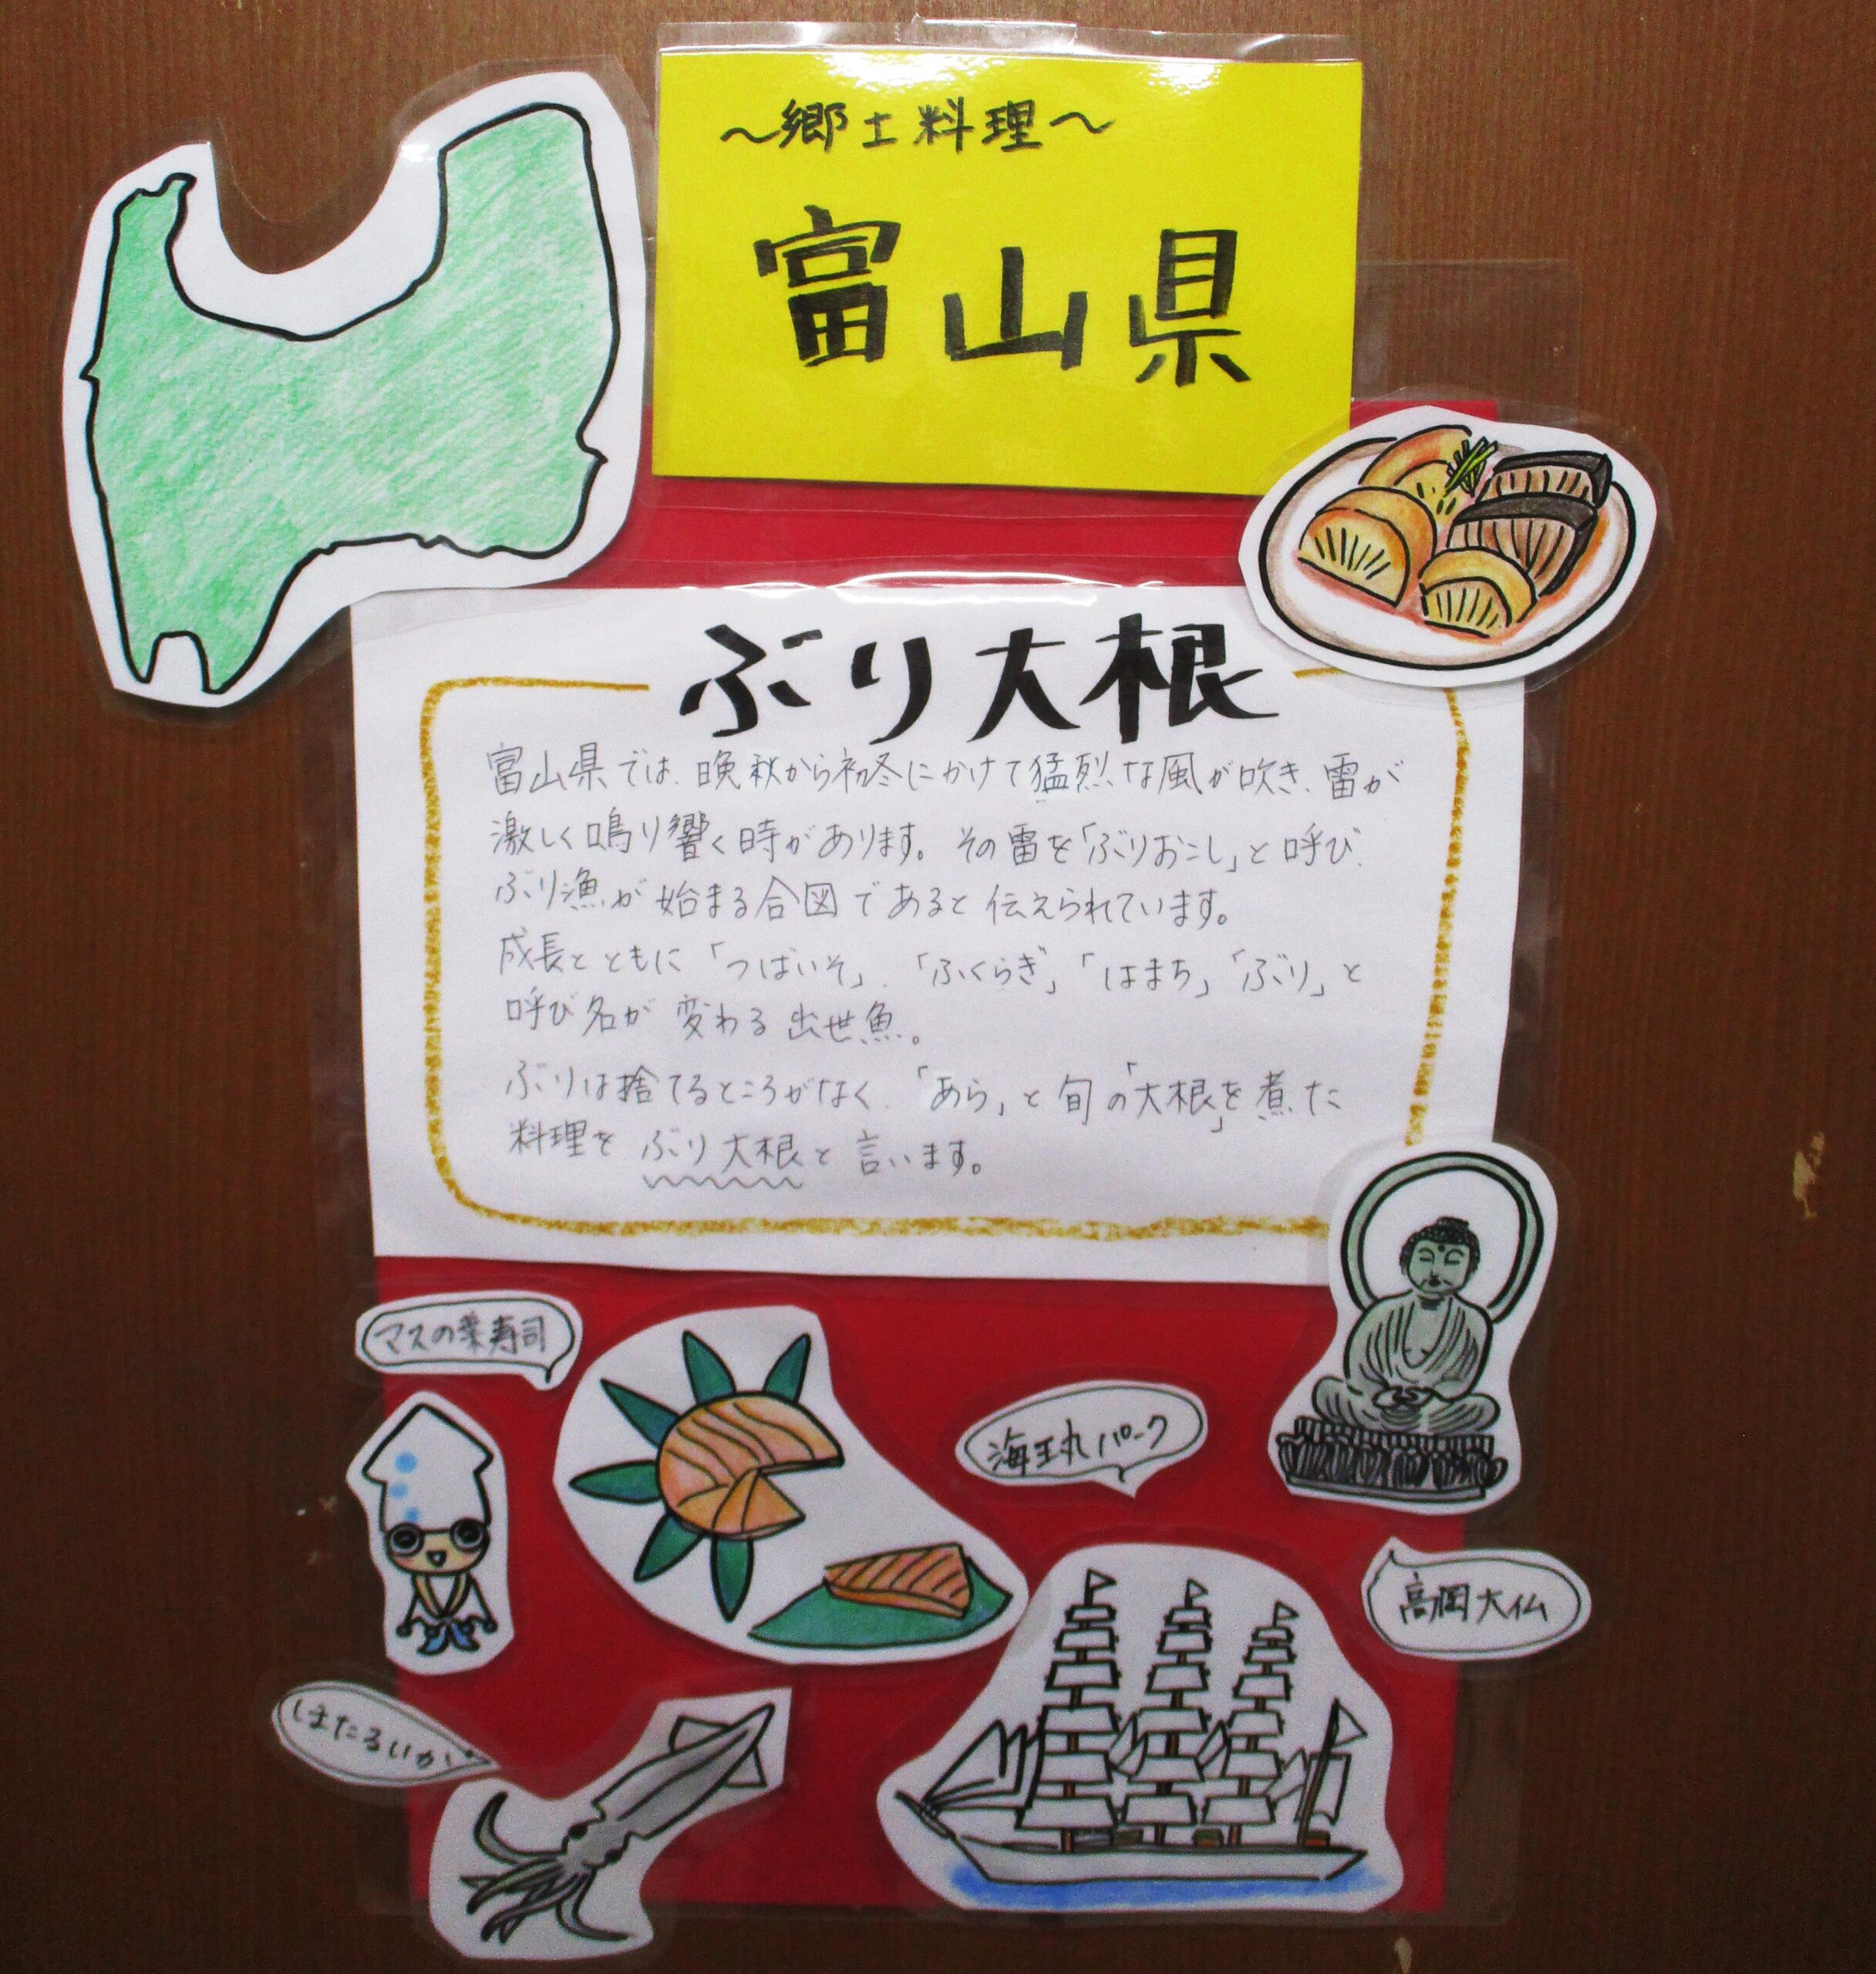 ～郷土料理～
富山県
ぶり大根
富山県では、晩秋から初冬にかけて猛烈な風が吹き、雷が
激しく鳴り響く時があります。その雷を「ぶりおこし」と呼び、
ぶり漁が始まる合図であると伝えられています。
成長とともに「つばいそ」、「ふくらぎ」「はまち」「ぶり」と
呼び名が変わる出世魚。
ぶりは捨てるところがなく、「あら」と旬の「大根」を煮た
料理をぶり大根と言います。
マスの葉寿司
海王丸パーク
高岡大仏
ほたるいか